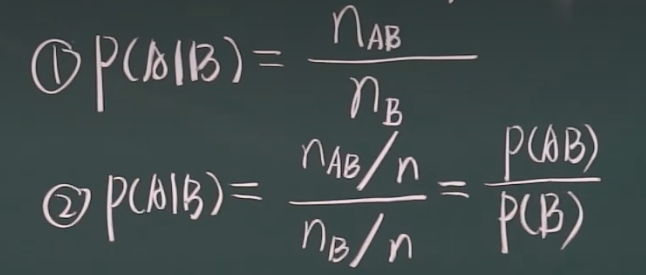 ① P(A|B) = n_AB / n_B
② P(A|B) = (n_AB/n) / (n_B/n) = P(AB) / P(B)